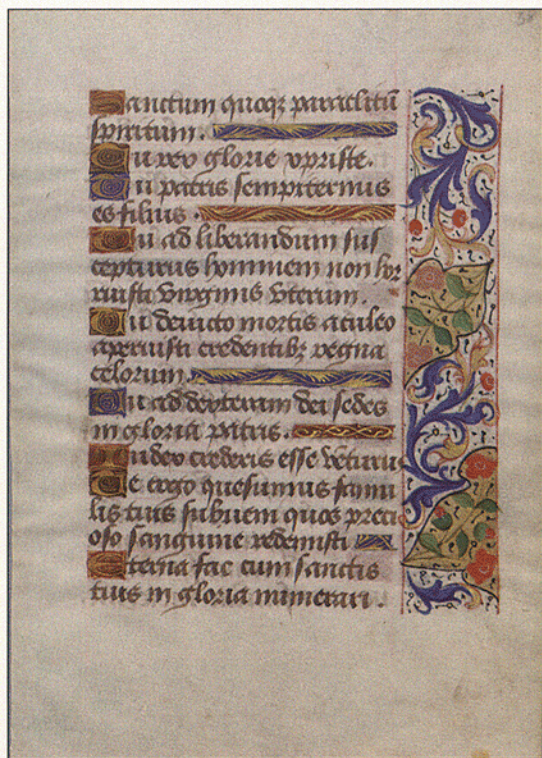 Sanctum quoqz paraclitū
spiritum.
Tu rex glorie xpriste.
Tu patris sempiternus
es filius.
Tu ad liberandum sus
cepturus hominem non hor
ruisti virginis vterum.
Tu devicto mortis aculeo
aperuisti credentibz regna
celorum.
Tu ad dexteram dei sedes
in gloria patris.
Iudex crederis esse vēturus
Te ergo quesumus famu
lis tuis subueni quos preci
oso sanguine redemisti
Eterna fac cum sanctis
tuis in gloria numerari.